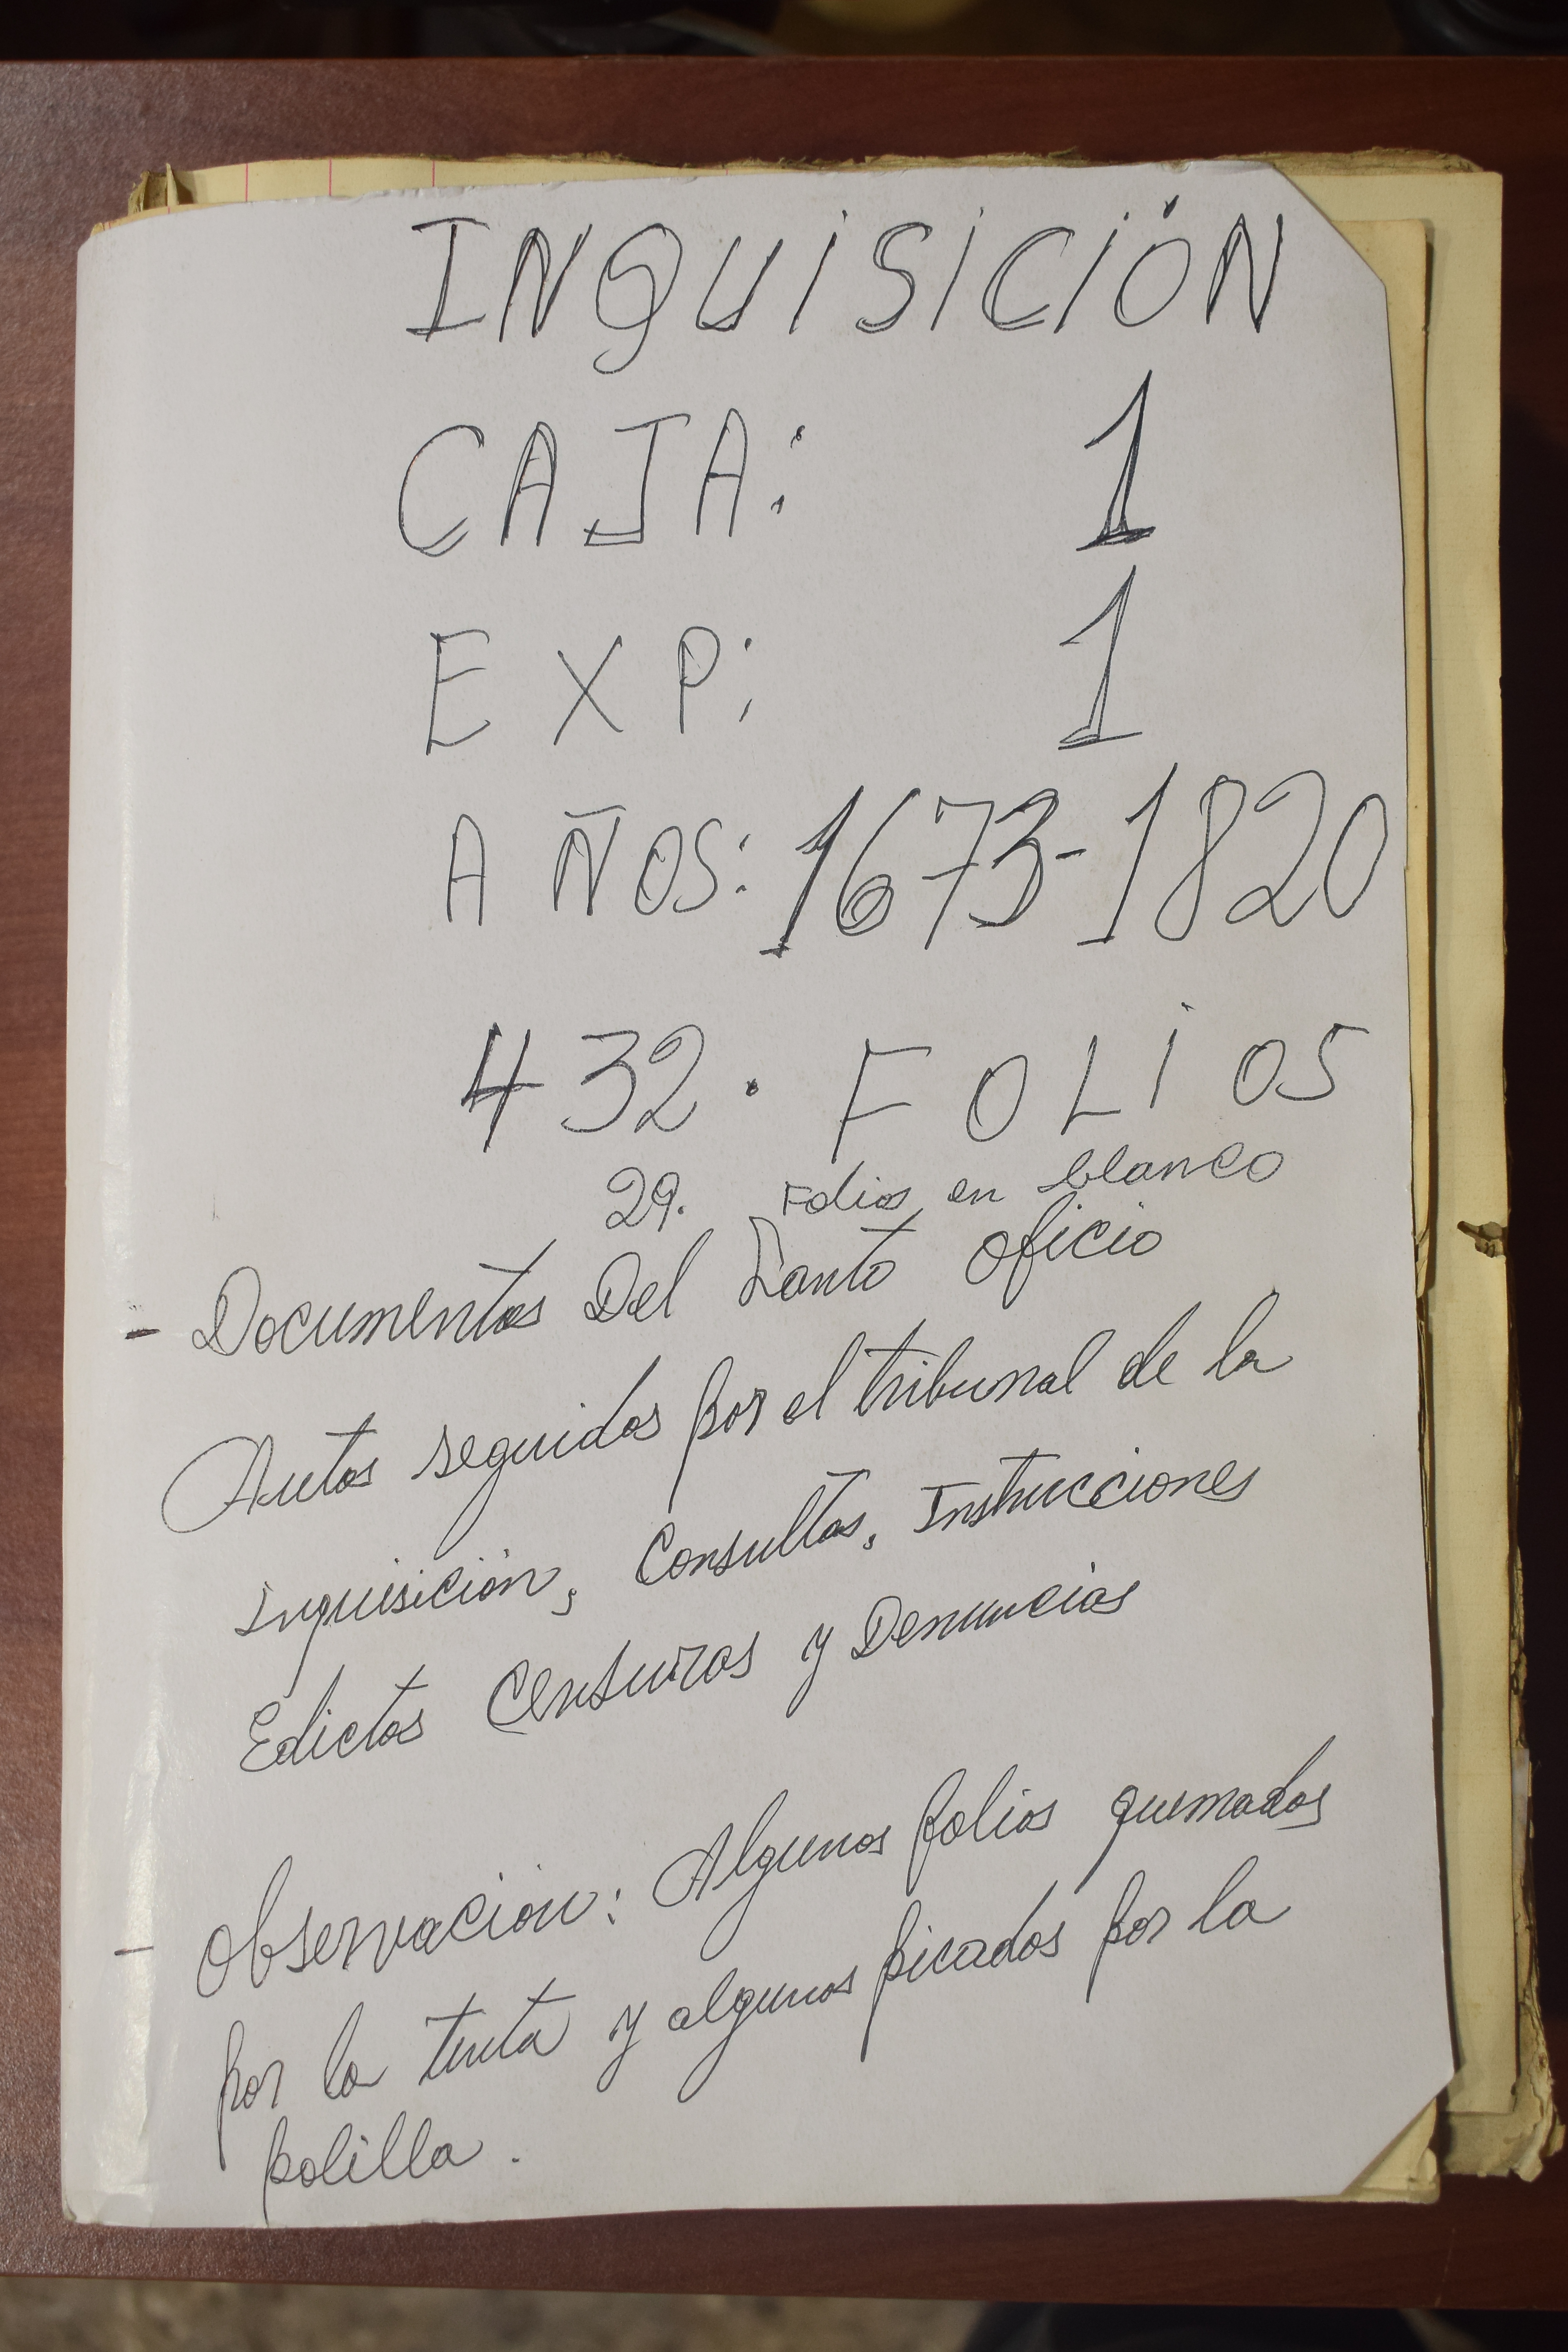 INQUISICIÓN
CAJA: 1
EXP: 1
AÑOS: 1673-1820
432. FOLIOS
29. Folios en blanco
- Documentos Del Santo Oficio
Autos seguidos por el tribunal de la
Inquisición, Consultas, Instrucciones
Edictos Censuras y Denuncias
- Observación: Algunos folios quemados
por la tinta y algunos picados por la
polilla.